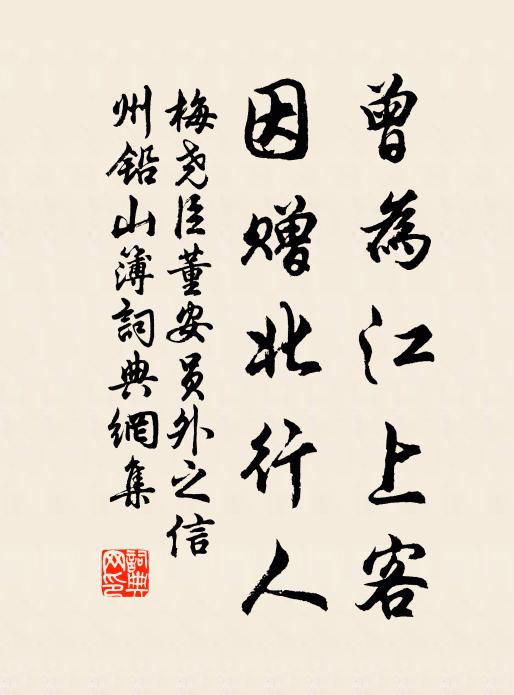 曾為江上客
因贈北行人
梅尧臣董安员外之信
州铅山簿詞典網集
詞典
网印